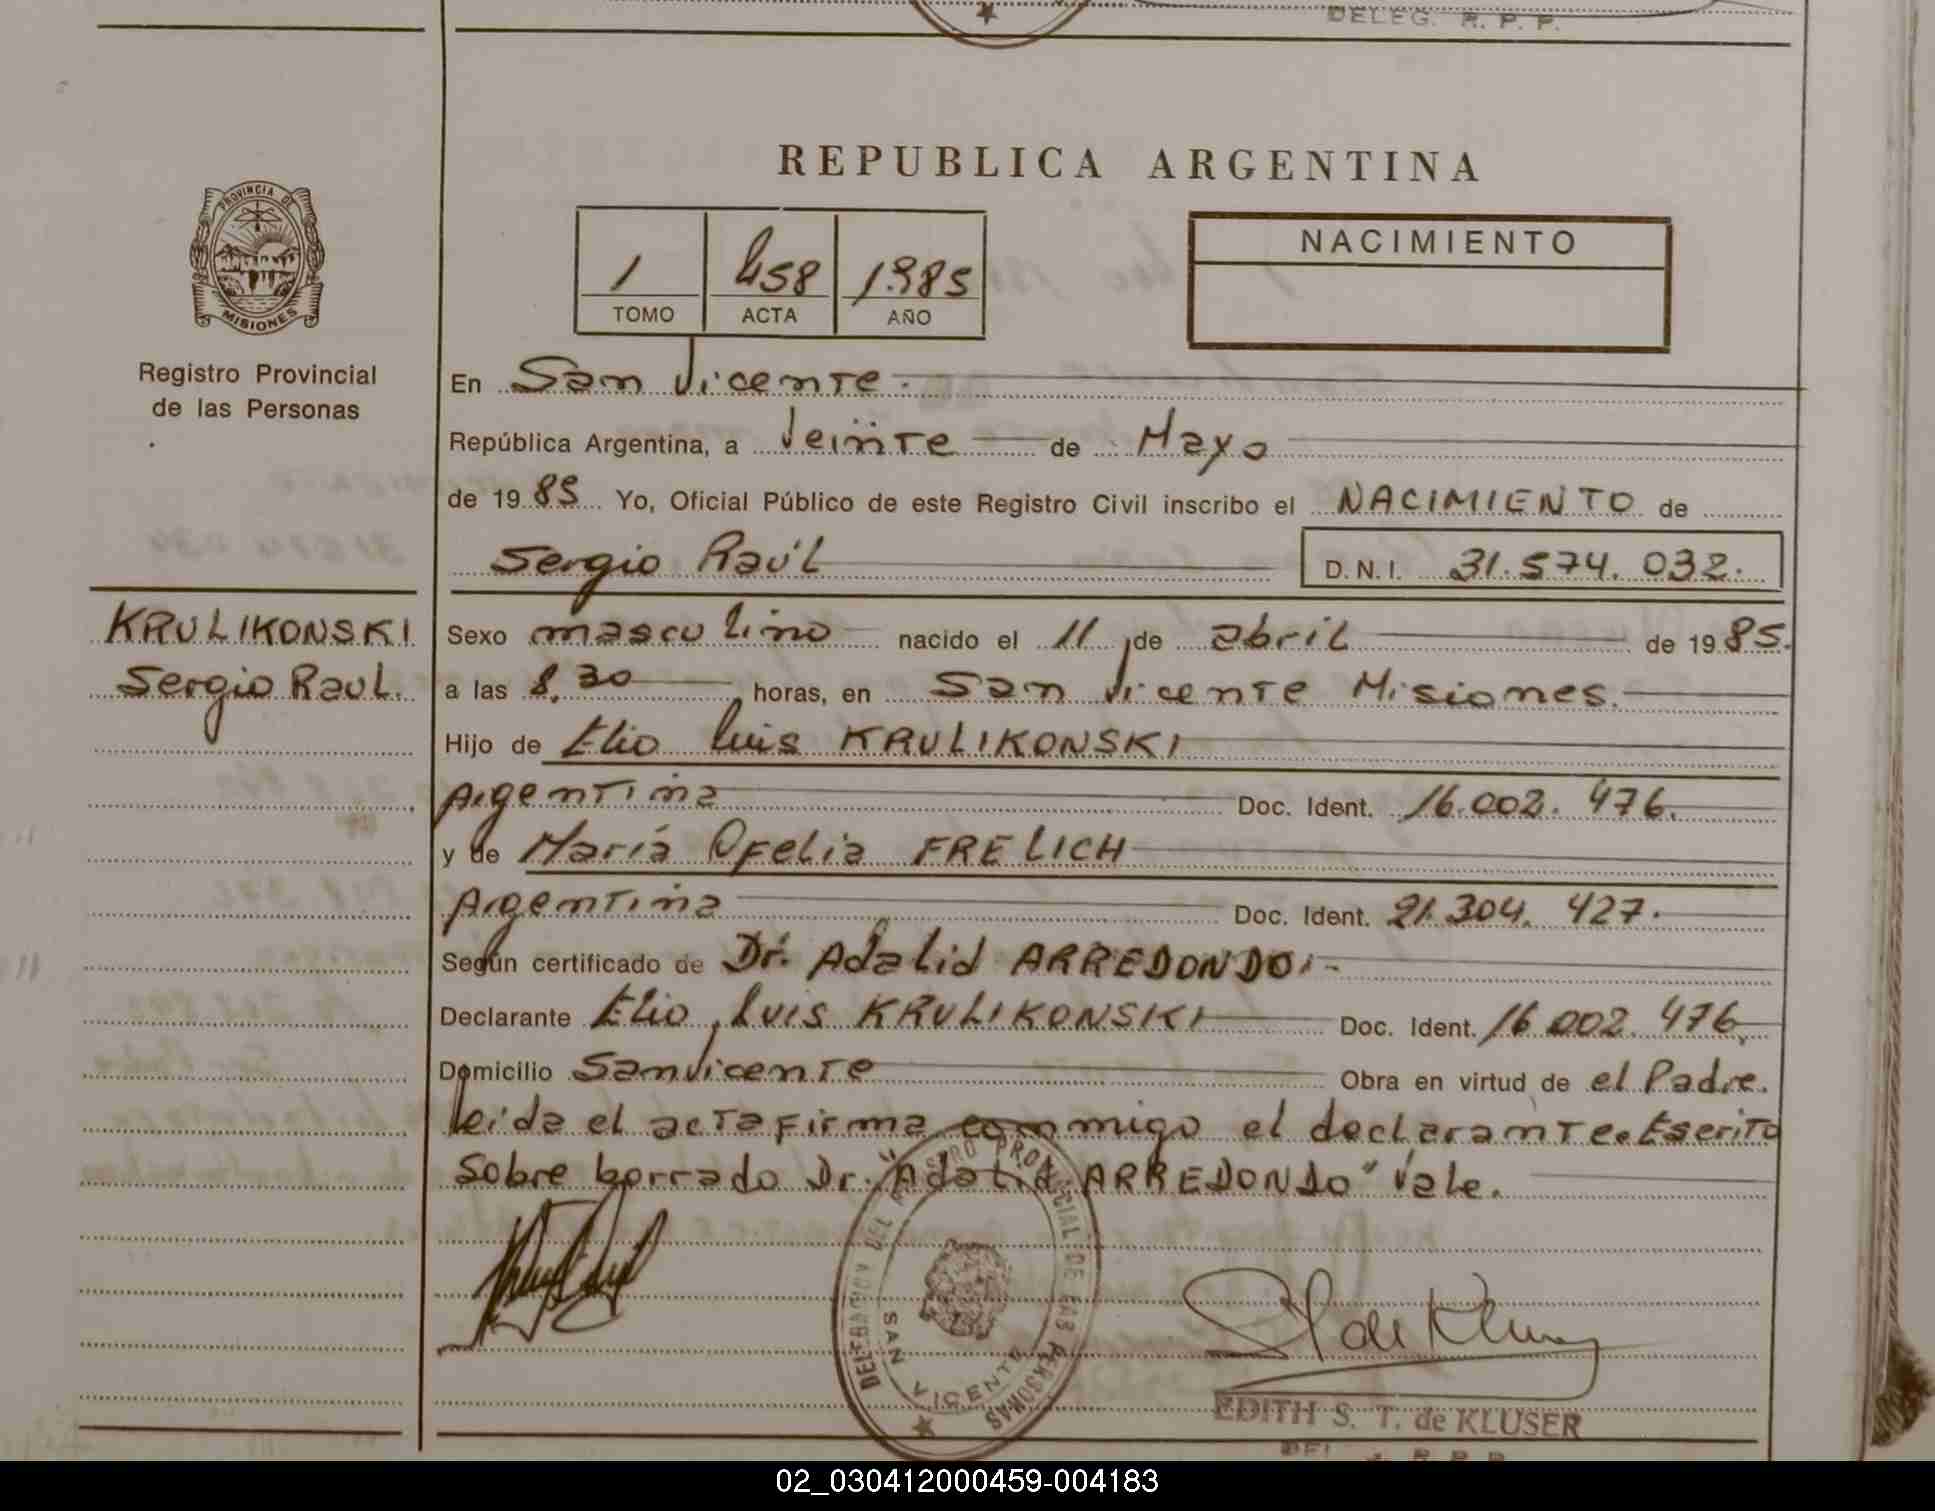 DELEG. R. P. P.
REPUBLICA ARGENTINA
PROVINCIA DE
MISIONES
Registro Provincial
de las Personas
1 458 1.985
TOMO ACTA AÑO
NACIMIENTO
En San Vicente.
República Argentina, a Veinte de Mayo
de 1985 Yo, Oficial Público de este Registro Civil inscribo el NACIMIENTO de
Sergio Raúl D.N.I. 31.574.032.
KRULIKONSKI
Sergio Raul.
Sexo masculino nacido el 11 de abril de 1985.
a las 8,30 horas, en San Vicente Misiones.
Hijo de Elio Luis KRULIKONSKI
Argentina Doc. Ident. 16.002.476.
y de María Ofelia FRELICH
Argentina Doc. Ident. 21.304.427.
Según certificado de Dr. Adalid ARREDONDO.-
Declarante Elio Luis KRULIKONSKI Doc. Ident. 16.002.476
Domicilio San Vicente Obra en virtud de el Padre.
leida el acta firma conmigo el declarante. Escrito
sobre borrado Dr. "Adalid ARREDONDO" Vale.
DELEGACION DEL REGISTRO PROVINCIAL DE LAS PERSONAS
SAN VICENTE
EDITH S. T. de KLUSER
02_030412000459-004183